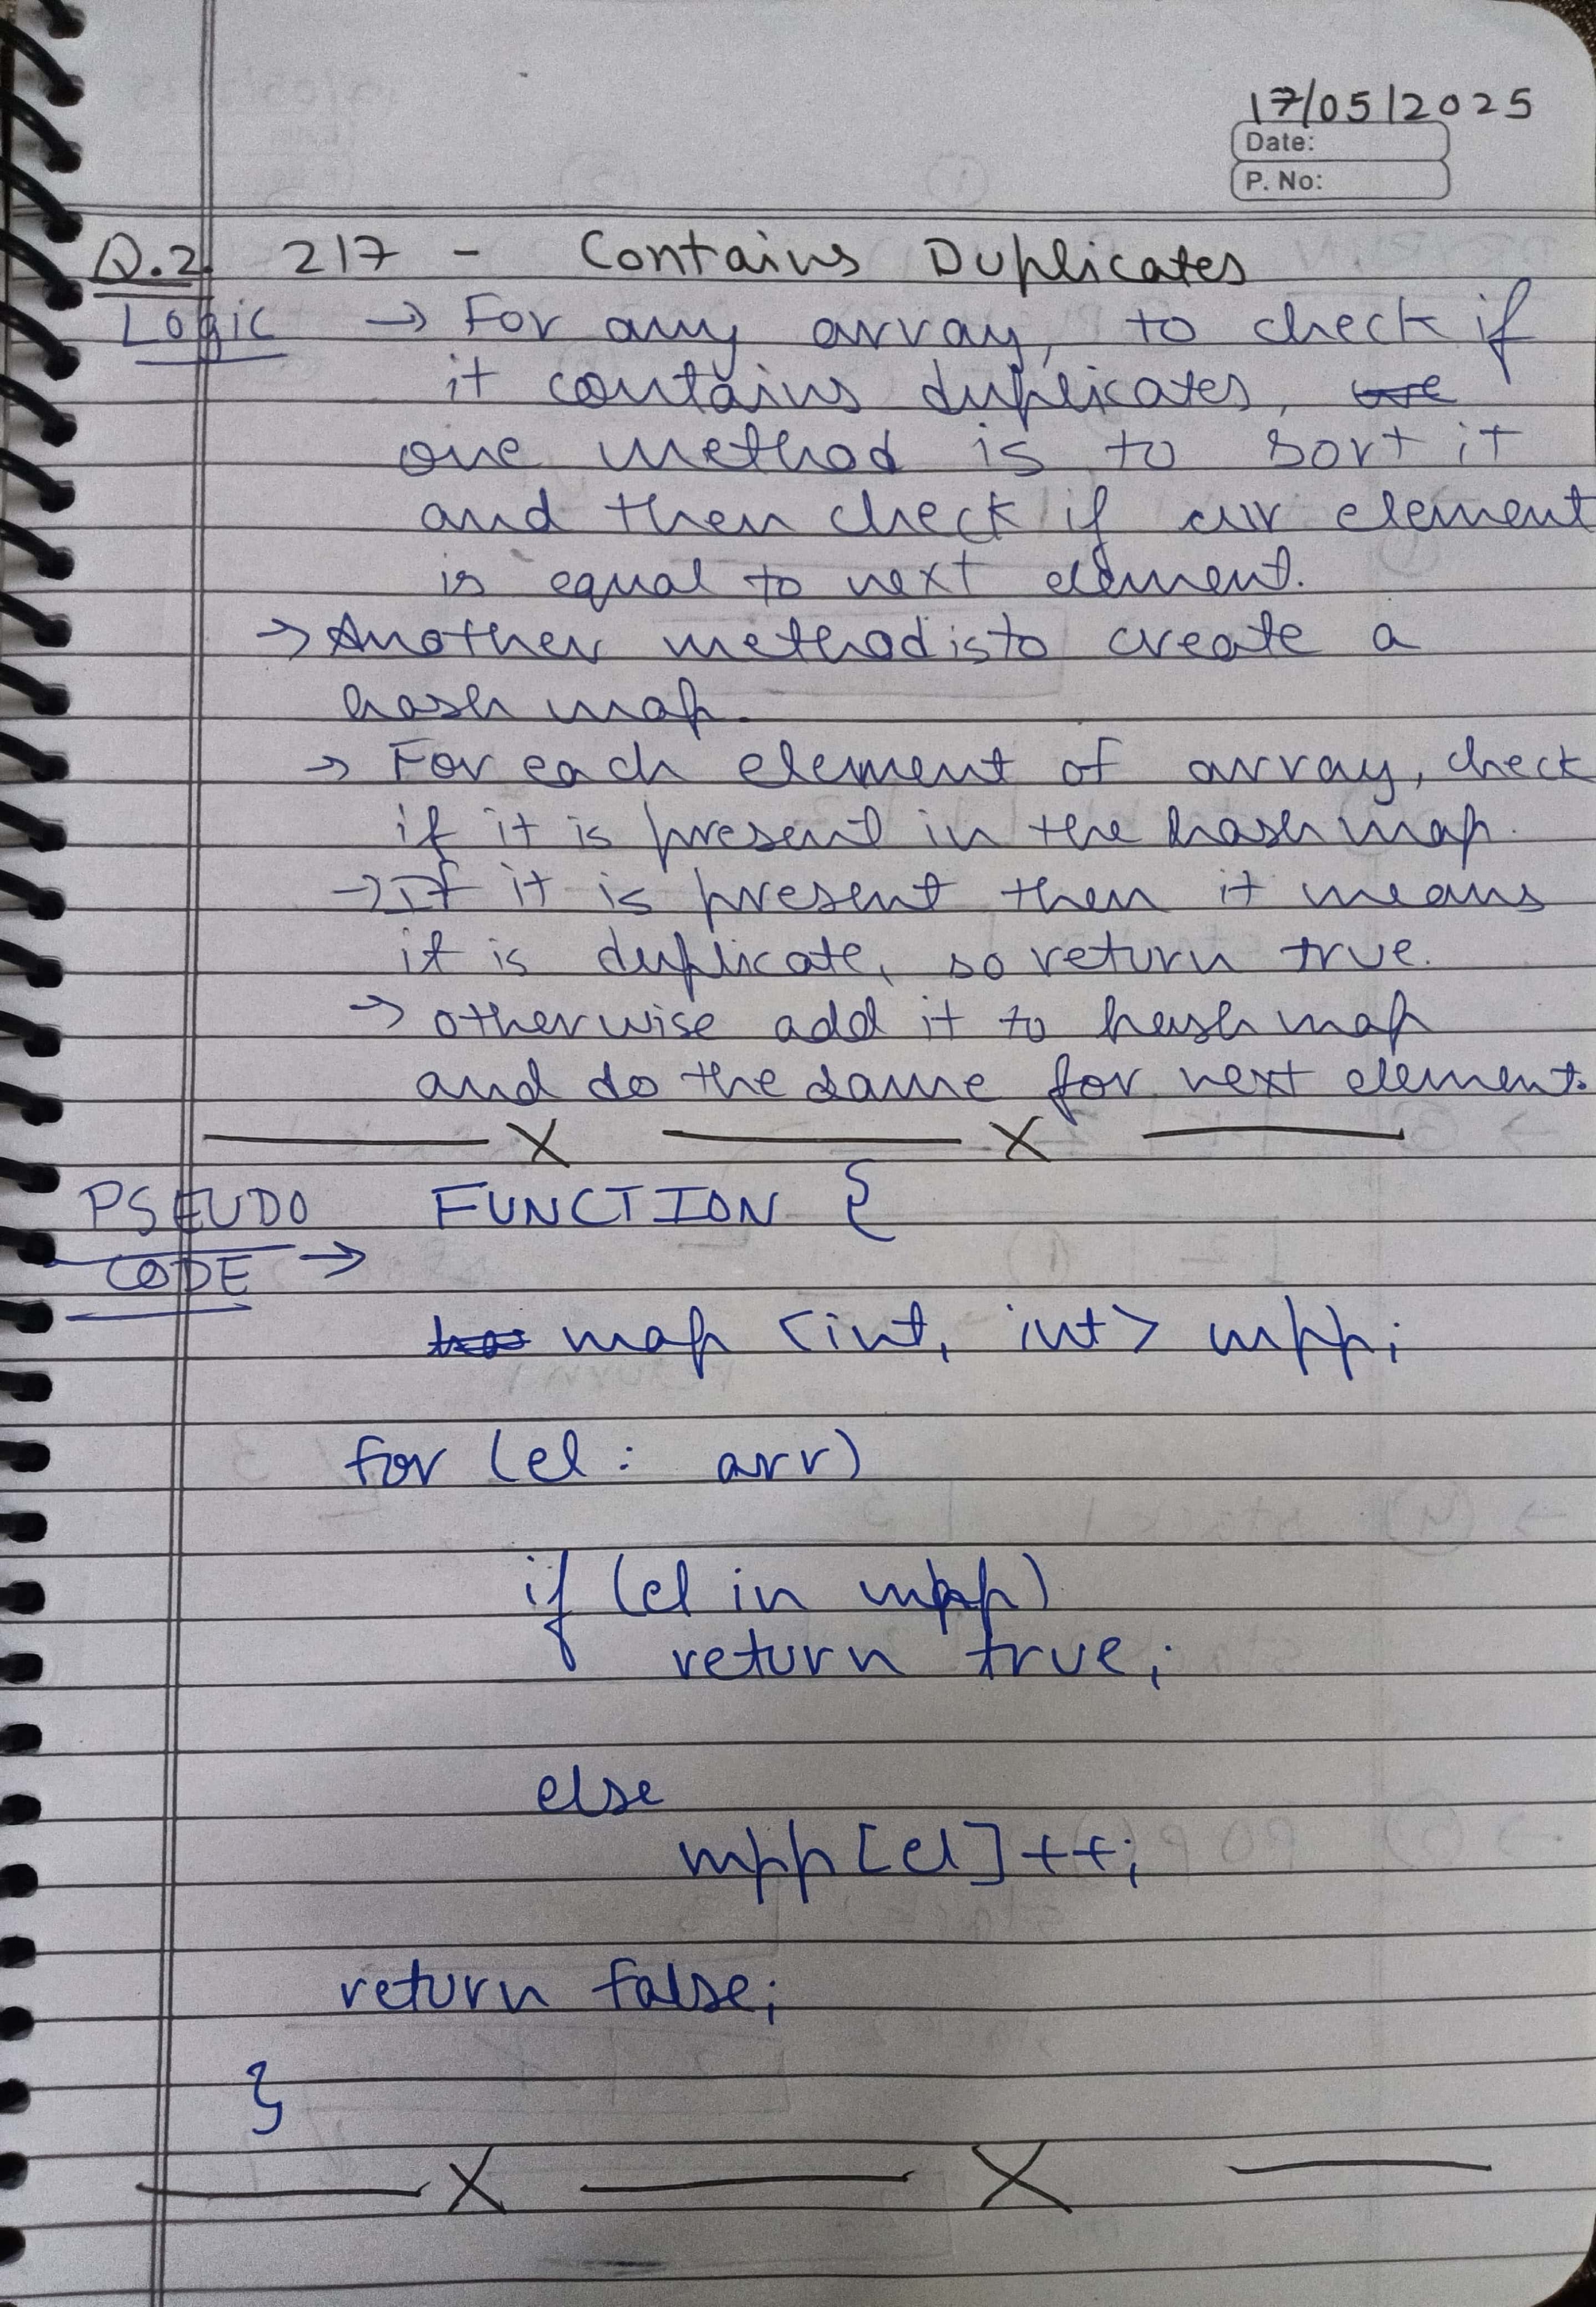 17/05/2025
Date:
P. No:
Q.2. 217 - Contains Duplicates
Logic → For any array, to check if
it contains duplicates,
one method is to sort it
and then check if curr element
is equal to next element.
→ Another method is to create a
hash map.
→ For each element of array, check
if it is present in the hash map.
→ If it is present then it means
it is duplicate, so return true.
→ otherwise add it to hash map
and do the same for next element.
X X
PSEUDO FUNCTION {
CODE →
map <int, int> mpp;
for (el : arr)
if (el in mpp)
return true;
else
mpp[el]++;
return false;
}
X X